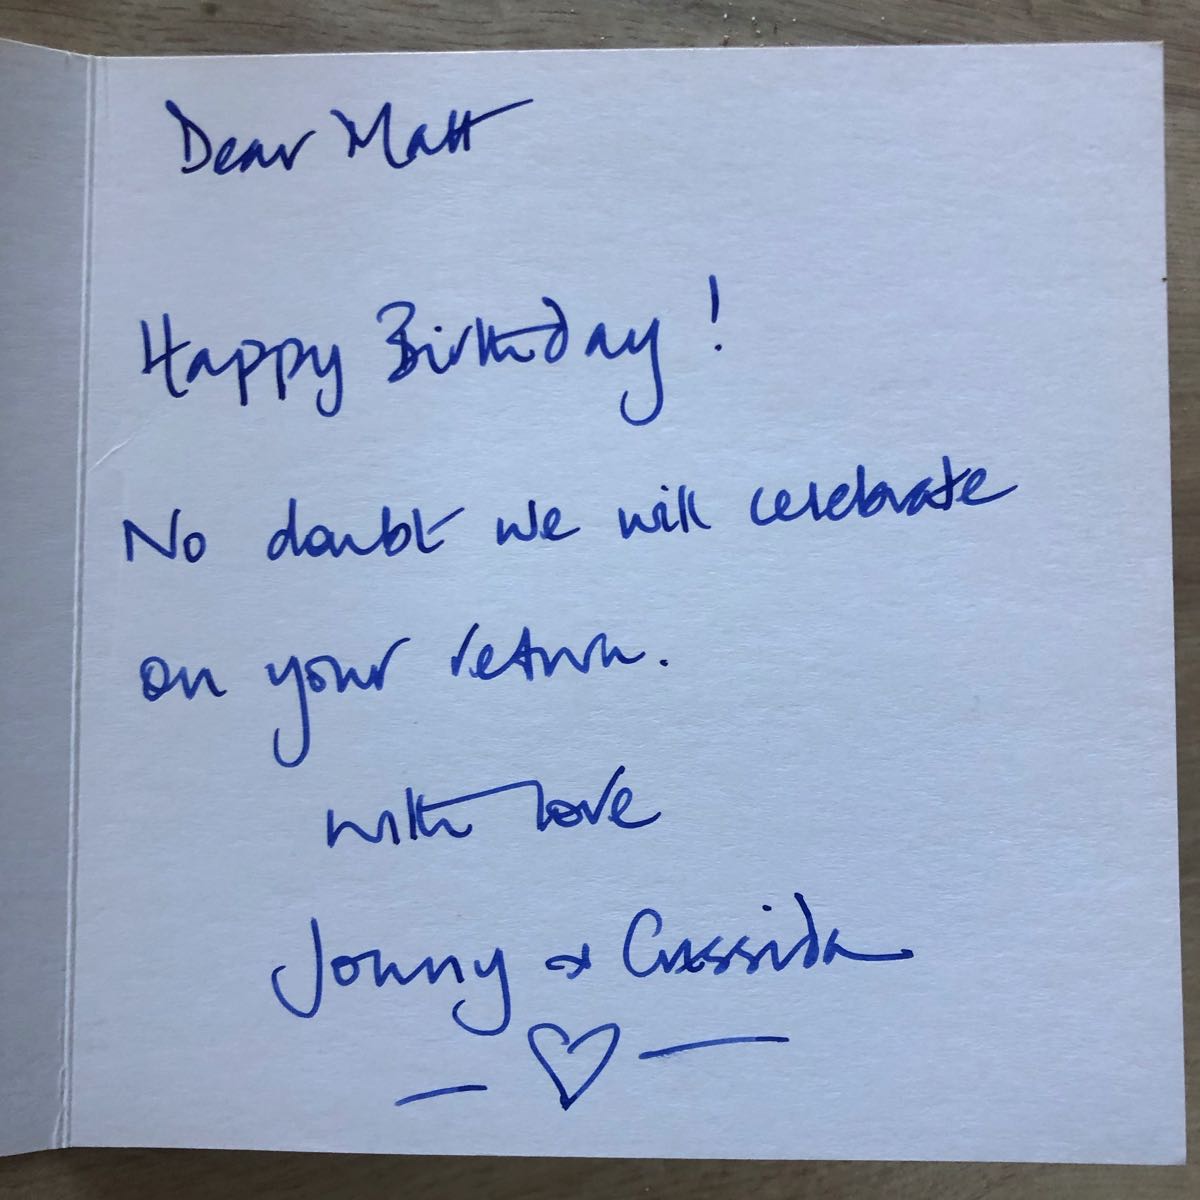 Dear Matt
Happy Birthday!
No doubt we will celebrate
on your return.
with love
Jonny & Cassida